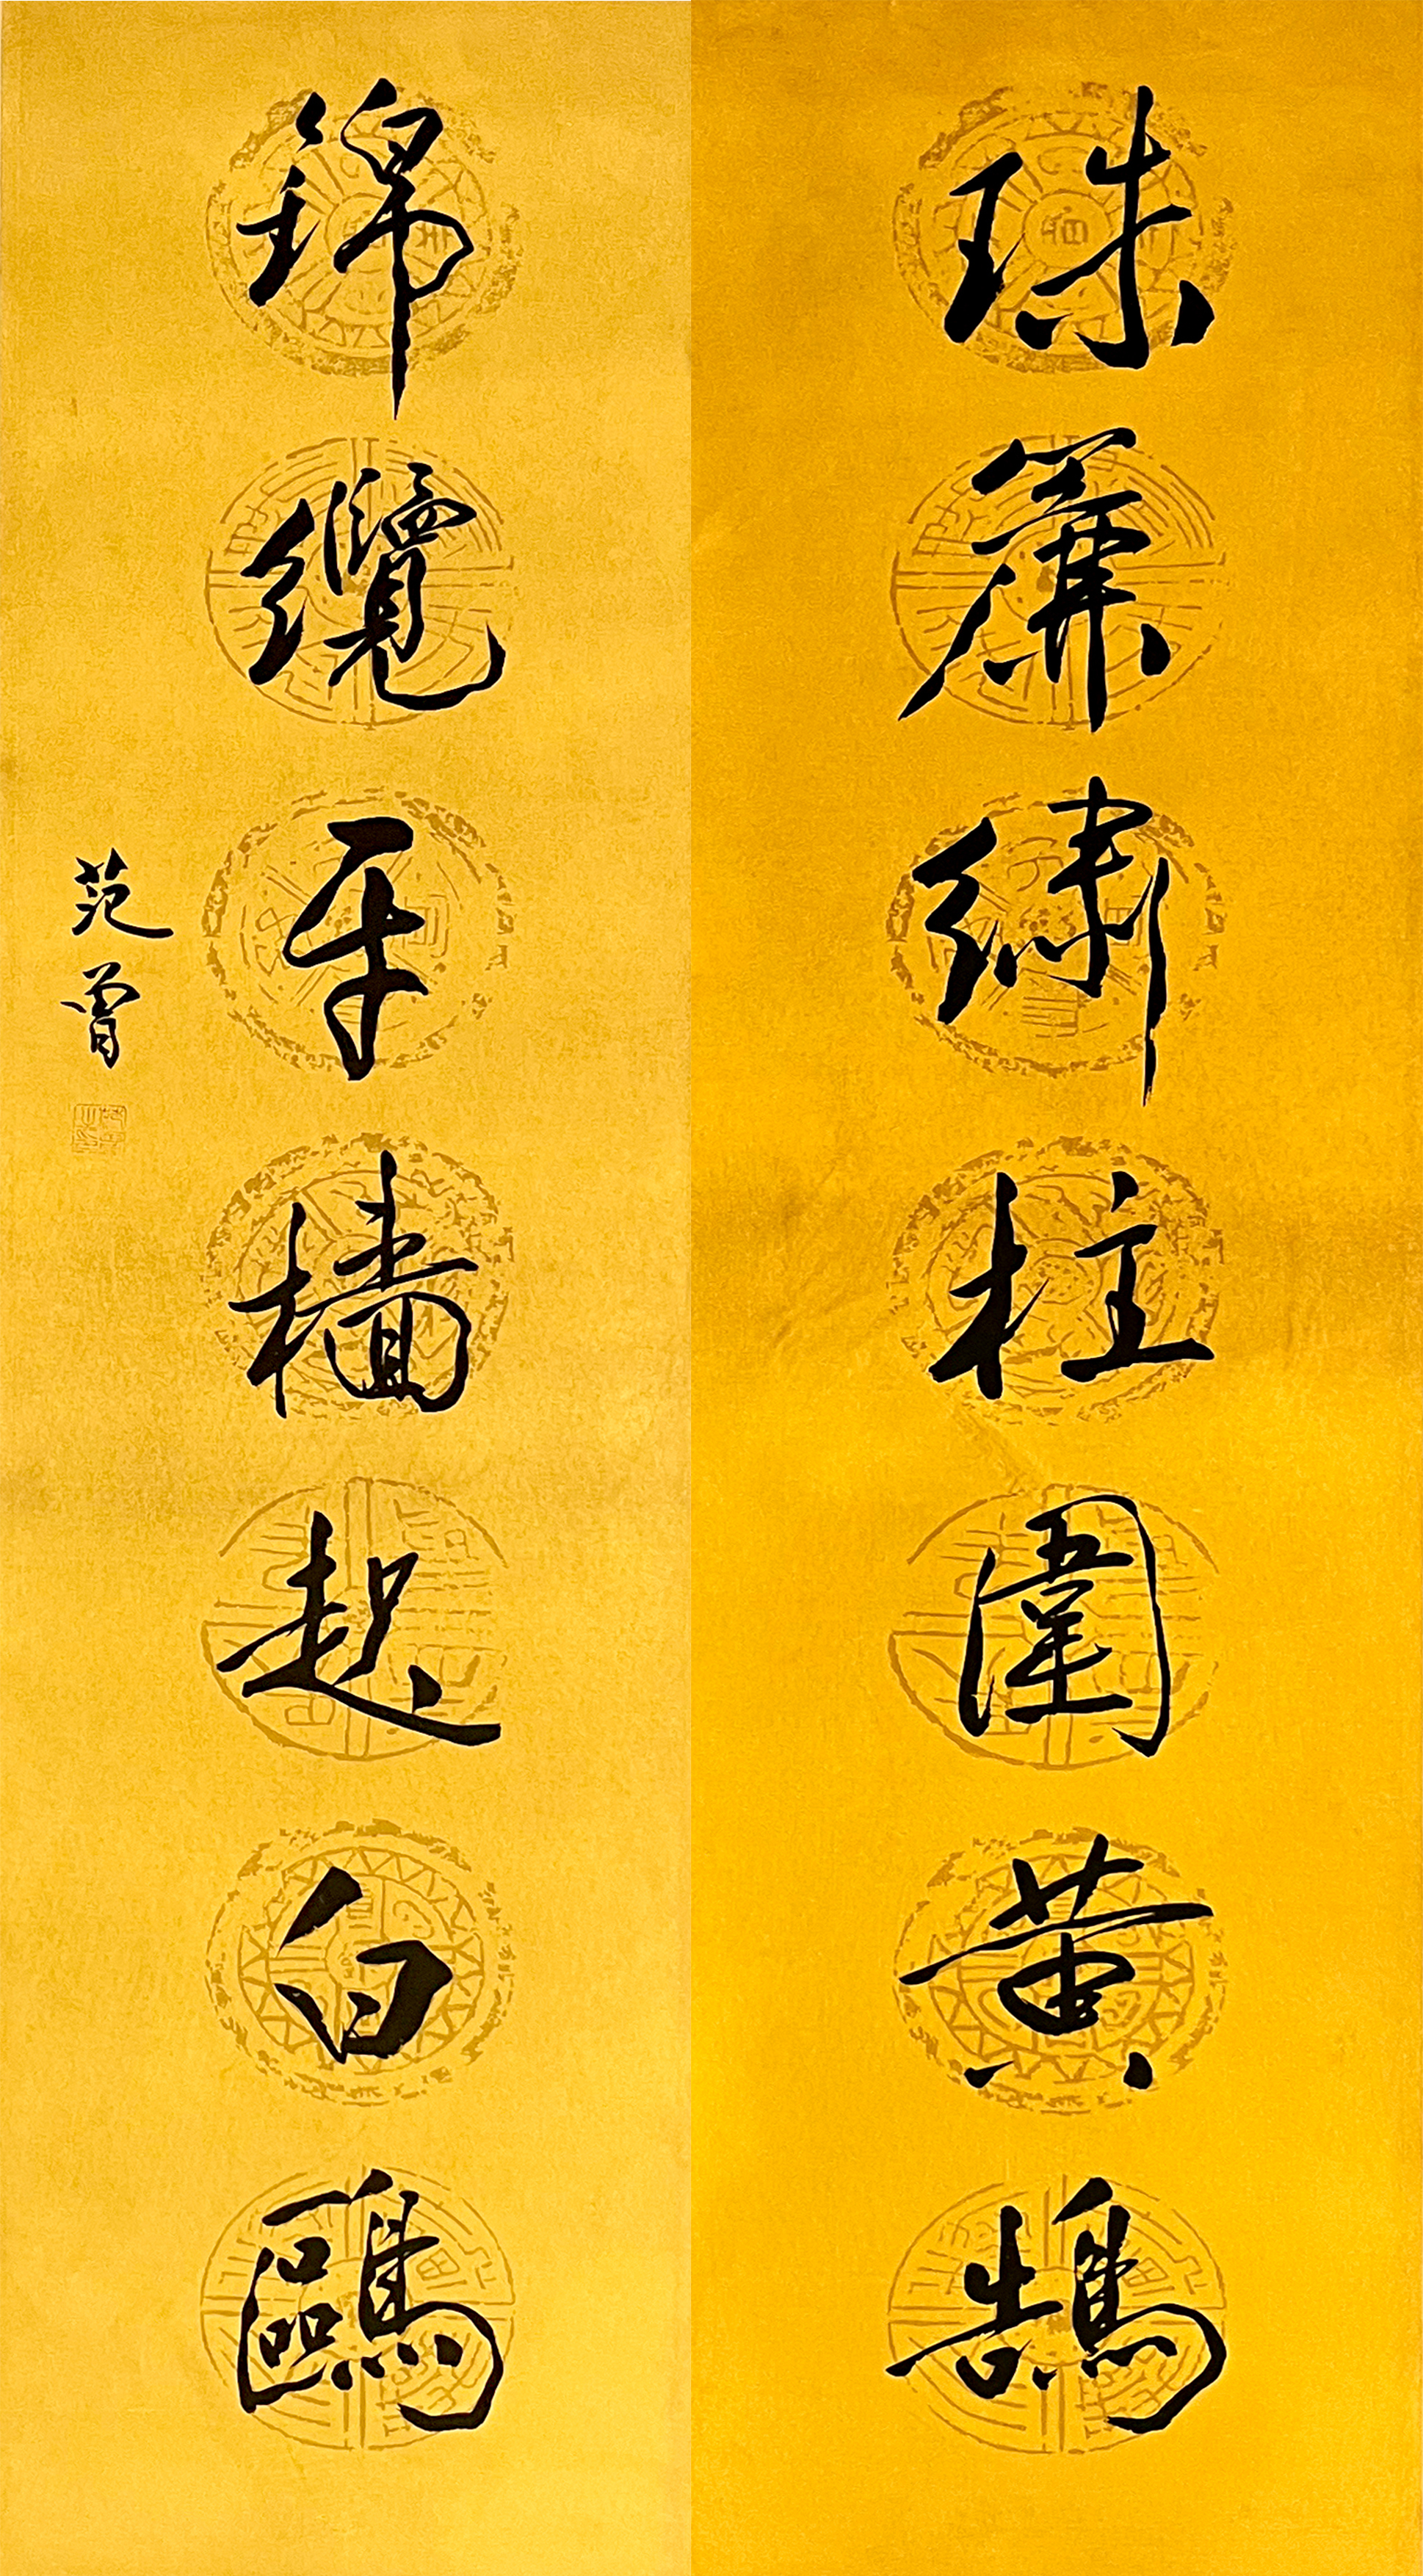 珠簾繡柱圍黄鵠
錦纜牙檣起白鷗
范曾